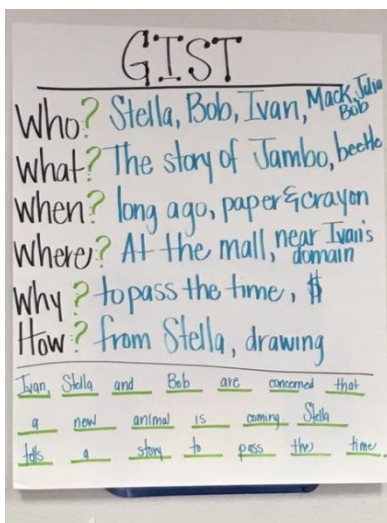 GIST
Who? Stella, Bob, Ivan, Mack, Julia
Bob
What? The story of Jambo, beetle
When? long ago, paper & crayon
Where? At the mall, near Ivan's
domain
Why? to pass the time, $
How? from Stella, drawing
Ivan, Stella and Bob are concerned that
a new animal is coming. Stella
tells a story to pass the time.